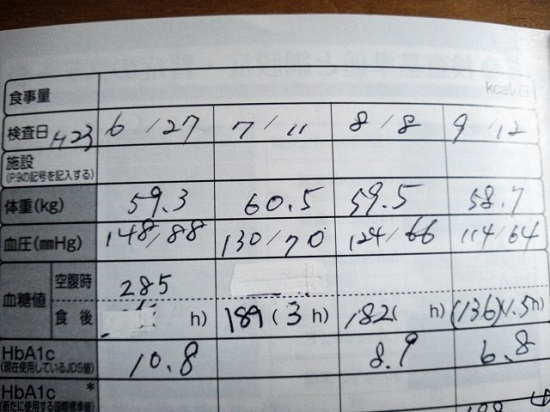 食事量 kcal/日
検査日 H23 6/27 7/11 8/8 9/12
施設
(P.9の記号を記入する)
体重(kg) 59.3 60.5 59.5 58.7
血圧(mmHg) 148/88 130/70 124/66 114/64
血糖値 空腹時 285
食後 h) 189(3h) 182( h) (136)(1.5h)
HbA1c 10.8 8.9 6.8
(現在使用しているJDS値)
HbA1c *
(新たに使用する国際標準値)